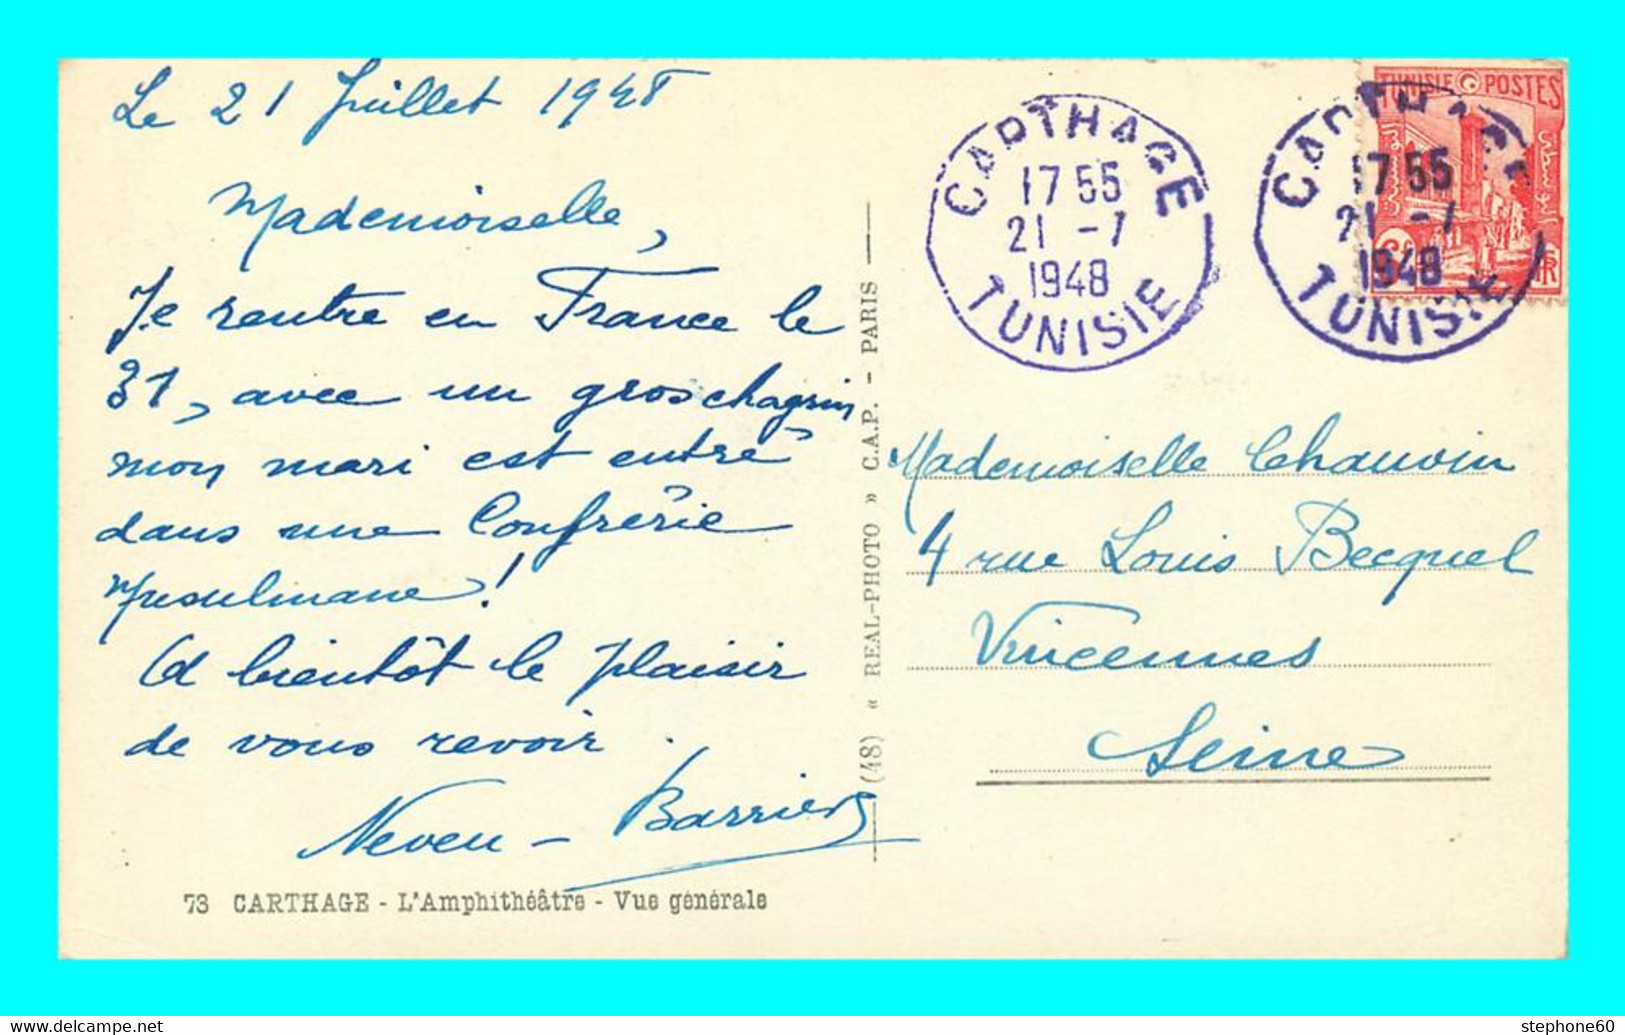 Le 21 Juillet 1948
Mademoiselle,
Je rentre en France le
31, avec un gros chagrin
mon mari est entré
dans une Confrérie
Musulmane !
A bientôt le plaisir
de vous revoir.
Neveu - Barrière
73 CARTHAGE - L'Amphithéâtre - Vue générale
(48) « REAL-PHOTO » C.A.P. - PARIS
CARTHAGE
17 55
21 -7
1948
TUNISIE
CARTHAGE
17 55
21 -7
1948
TUNISIE
TUNISIE POSTES
6F
RF
Mademoiselle Chauvin
4 rue Louis Becquel
Vincennes
Seine
delcampe.net
stephone60